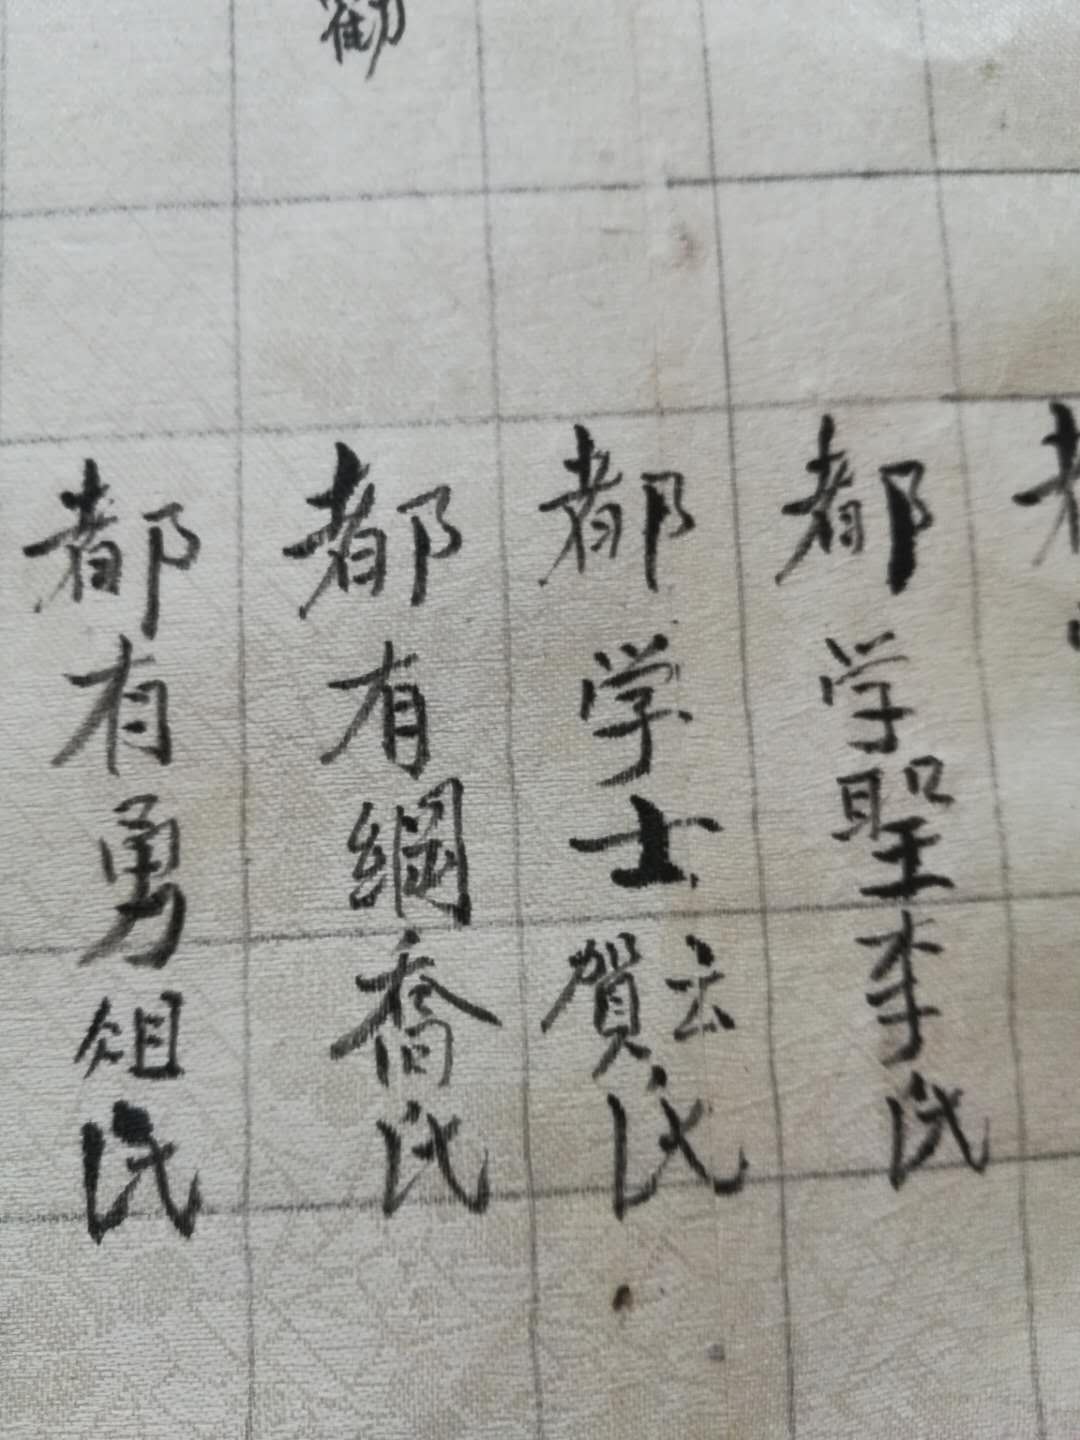 都学聖李氏
都学士賀云氏
都有綱喬氏
都有勇俎氏